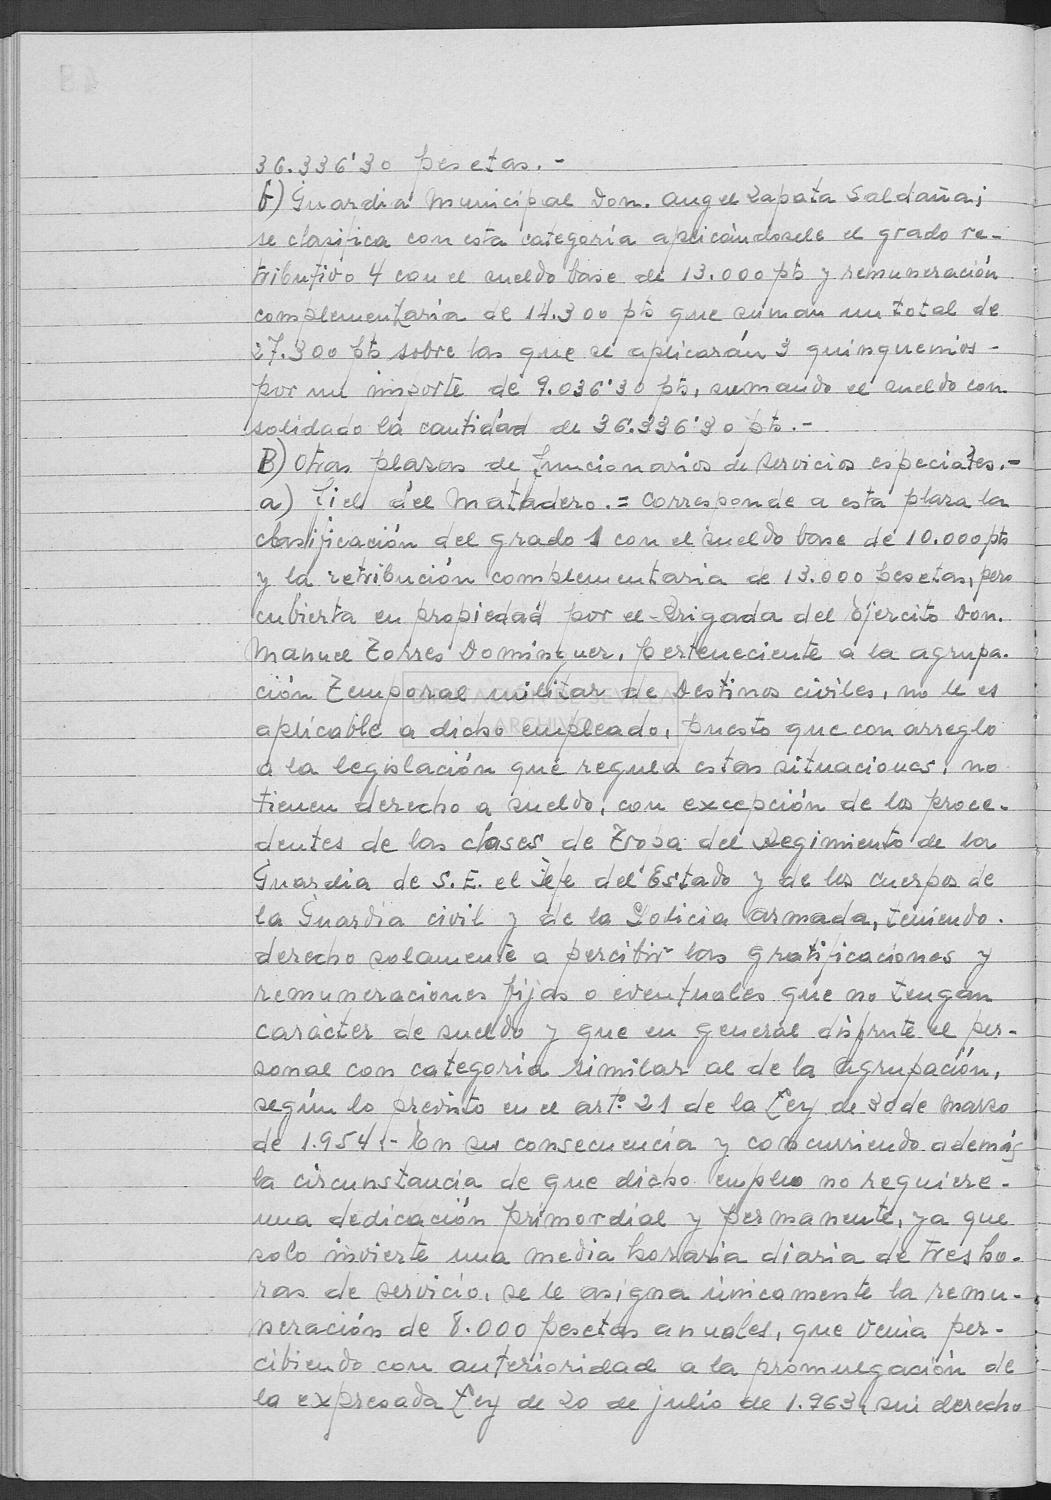 36.336'30 pesetas.-
f) Guardia Municipal Don. Angel Zapata Saldaña;
se clasifica con esta categoría aplicándosele el grado re-
tributivo 4 con el sueldo base de 13.000 pts y remuneración
complementaria de 14.300 pts que suman un total de
27.300 pts sobre las que se aplicarán 3 quinquenios-
por un importe de 9.036'30 pts, sumando el sueldo con
solidado la cantidad de 36.336'30 pts.-
B) Otras plazas de funcionarios de servicios especiales.-
a) Fiel del Matadero.= Corresponde a esta plaza la
clasificación del grado 1 con el sueldo base de 10.000 pts
y la retribución complementaria de 13.000 pesetas, pero
cubierta en propiedad por el Brigada del Ejército Don.
Manuel Torres Dominguez, perteneciente a la agrupa-
ción Temporal militar de Destinos civiles, no le es
aplicable a dicho empleado, puesto que con arreglo
a la legislación que regula estas situaciones, no
tienen derecho a sueldo, con excepción de los proce-
dentes de las clases de Tropa del Regimiento de la
Guardia de S.E. el Jefe del Estado y de los cuerpos de
la Guardia civil y de la Policia Armada, teniendo.
derecho solamente a percibir las gratificaciones y
remuneraciones fijas o eventuales que no tengan
carácter de sueldo y que en general disfrute el per-
sonal con categoría similar al de la Agrupación,
según lo previsto en el artº 21 de la Ley de 30 de Marzo
de 1.954.- En su consecuencia y concurriendo además
la circunstancia de que dicho empleo no requiere-
una dedicación primordial y permanente, ya que
solo invierte una media horaria diaria de tres ho-
ras de servicio, se le asigna únicamente la remu-
neración de 8.000 pesetas anuales, que venia per-
cibiendo con anterioridad a la promulgación de
la expresada Ley de 20 de julio de 1.963, sin derecho
DIPUTACIÓN DE SEVILLA
ARCHIVO